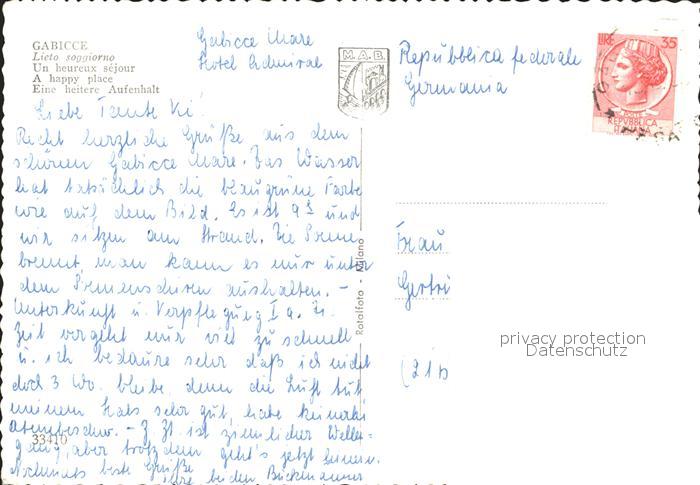 GABICCE
Lieto soggiorno
Un heureux séjour
A happy place
Eine heitere Aufenhalt
Gabicce Mare
Hotel Admiral
M.A.B.
Repubblica federale
Germania
LIRE 35
POSTE
REPVBBLICA
ITALIANA
Liebe Tante Vi!
Recht herzliche Grüße aus dem
schönen Gabicce Mare. Das Wasser
hat tatsächlich die blaugrüne Farbe
wie auf dem Bild. Es ist 9 und
wir sitzen am Strand. Die Sonne
brennt, man kann es nur unter
dem Sonnenschirm aushalten. –
Unterkunft u. Verpflegung I a. Die
Zeit vergeht nur viel zu schnell
u. ich bedaure sehr daß ich nicht
doch 3 Wo. bleibe, denn die Luft tut
meinem Hals sehr gut, habe keinerlei
Atembeschw. – Z. Zt. ist ziemlicher Wellen=
gang, aber trotzdem geht's jetzt hinein.
Nochmals beste Grüße
beiden
Frau
Gertru
(21b
Rotalfoto - Milano
33410
privacy protection
Datenschutz